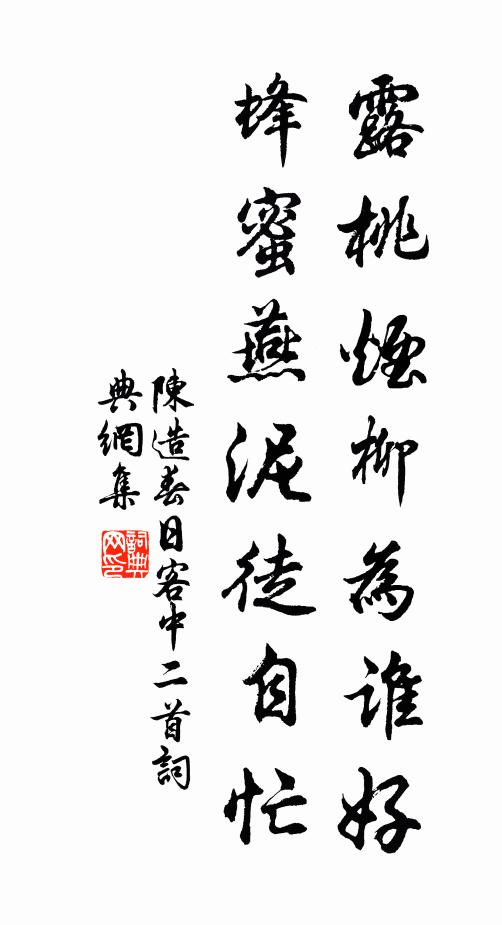 露桃煙柳為誰好
蜂蜜燕泥徒自忙
陳造春日客中二首詞
典網集
詞典网印